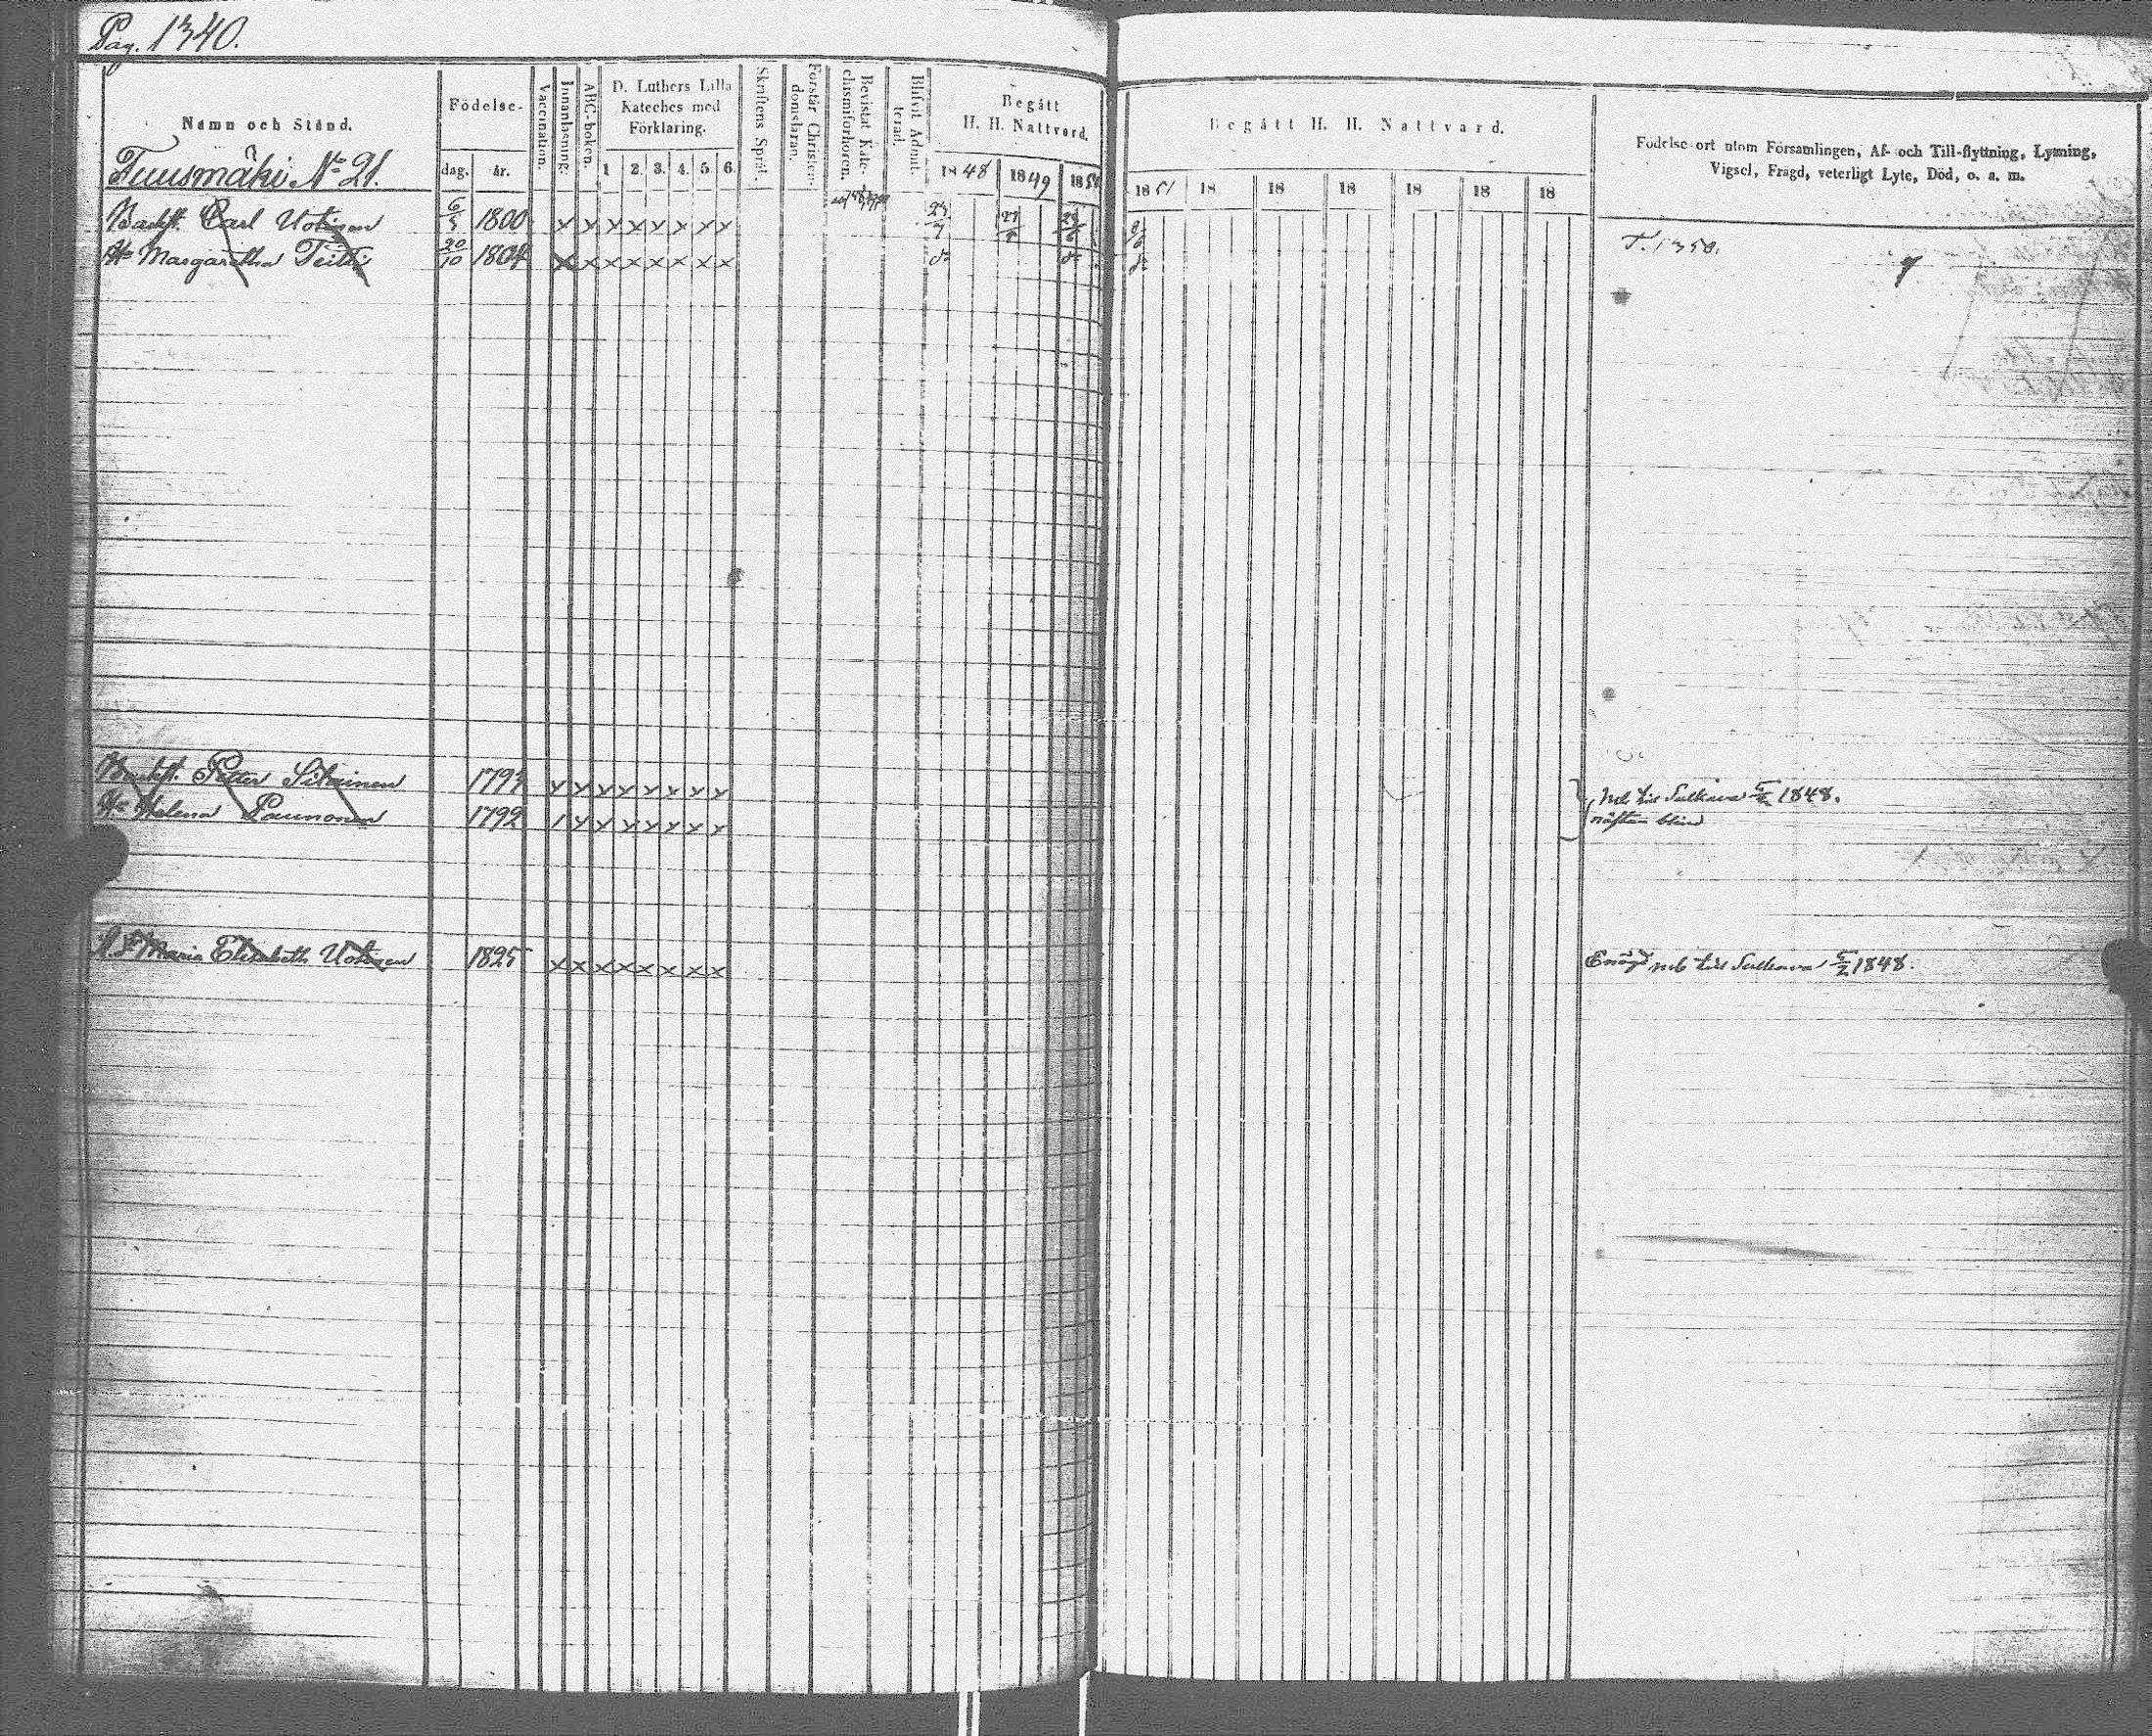 Pag. 1340.
Namn och Stånd.
Födelse-
dag.
år.
Vaccination.
Innanläsning.
ABC-boken.
D. Luthers Lilla
Kateches med
Förklaring.
1 2. 3. 4. 5. 6.
Skriftens Språk.
Förstår Christen-
domsläran.
Bevistat Kate-
chismiförhören.
Blifvit Admit-
terad.
Begått
H. H. Nattvard.
1848 1849 1850
Begått H. H. Nattvard.
1851 18 18 18 18 18 18
Födelse-ort utom Församlingen, Af- och Till-flyttning, Lysning,
Vigsel, Frägd, veterligt Lyte, Död, o. a. m.
Tuusmäki No 21.
Backst. Carl Uotinen 6/5 1800 x x x x x x x x
T. 1350.
Hu Margaretha Teitti 20/10 1804 x x x x x x x x
Backst. Petter Siitainen 1794 x x x x x x x x till Sulkava 1848.
Hu Helena Paunonen 1792 x x x x x x x nästan blind
Maria Elisabeth Uotinen 1825 x x x x x x x x Enögd till Sulkava 1848.